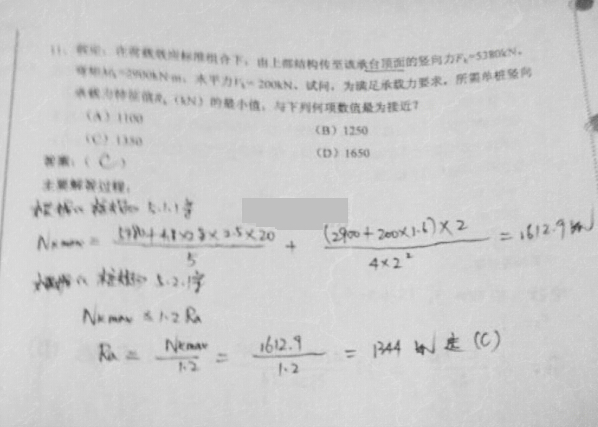 11、假定，在荷载效应标准组合下，由上部结构传至该承台顶面的竖向力Fk=5380kN，
弯矩Mk=2900kN·m，水平力Vk=200kN。试问，为满足承载力要求，所需单桩竖向
承载力特征值Ra（kN）的最小值，与下列何项数值最为接近？
（A）1100 （B）1250
（C）1350 （D）1650
答案：（C）
主要解答过程：
5.1.1
Nkmax = (5380+4.8×2.8×2.5×20)/5 + (2900+200×1.6)×2/(4×2²) = 1612.9 kN
5.2.1
Nkmax ≤ 1.2 Ra
Ra = Nkmax/1.2 = 1612.9/1.2 = 1344 kN 选 (C)